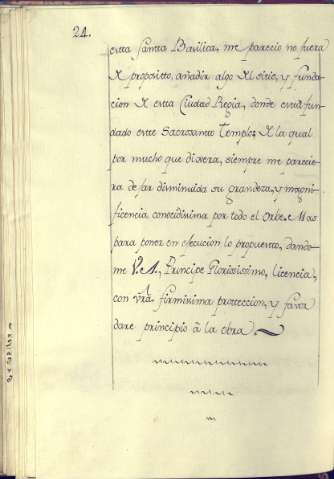 24.
estta santta Basilica, me parecio no fuera
de proposito, añadir algo del sitio, y funda
cion de estta Ciudad Regia, donde está fun
dado este Sacrosanto Templo, de la qual
por mucho que dixera, siempre me parecie
ra dejar disminuida su grandeza, y magni
ficencia conocidissima por todo el Orbe. Mas
para poner en ejecucion lo propuesto, dando
me V. A., Principe Florissisimo, licencia,
con vra firmissima proteccion, y favor
dare principio â la obra